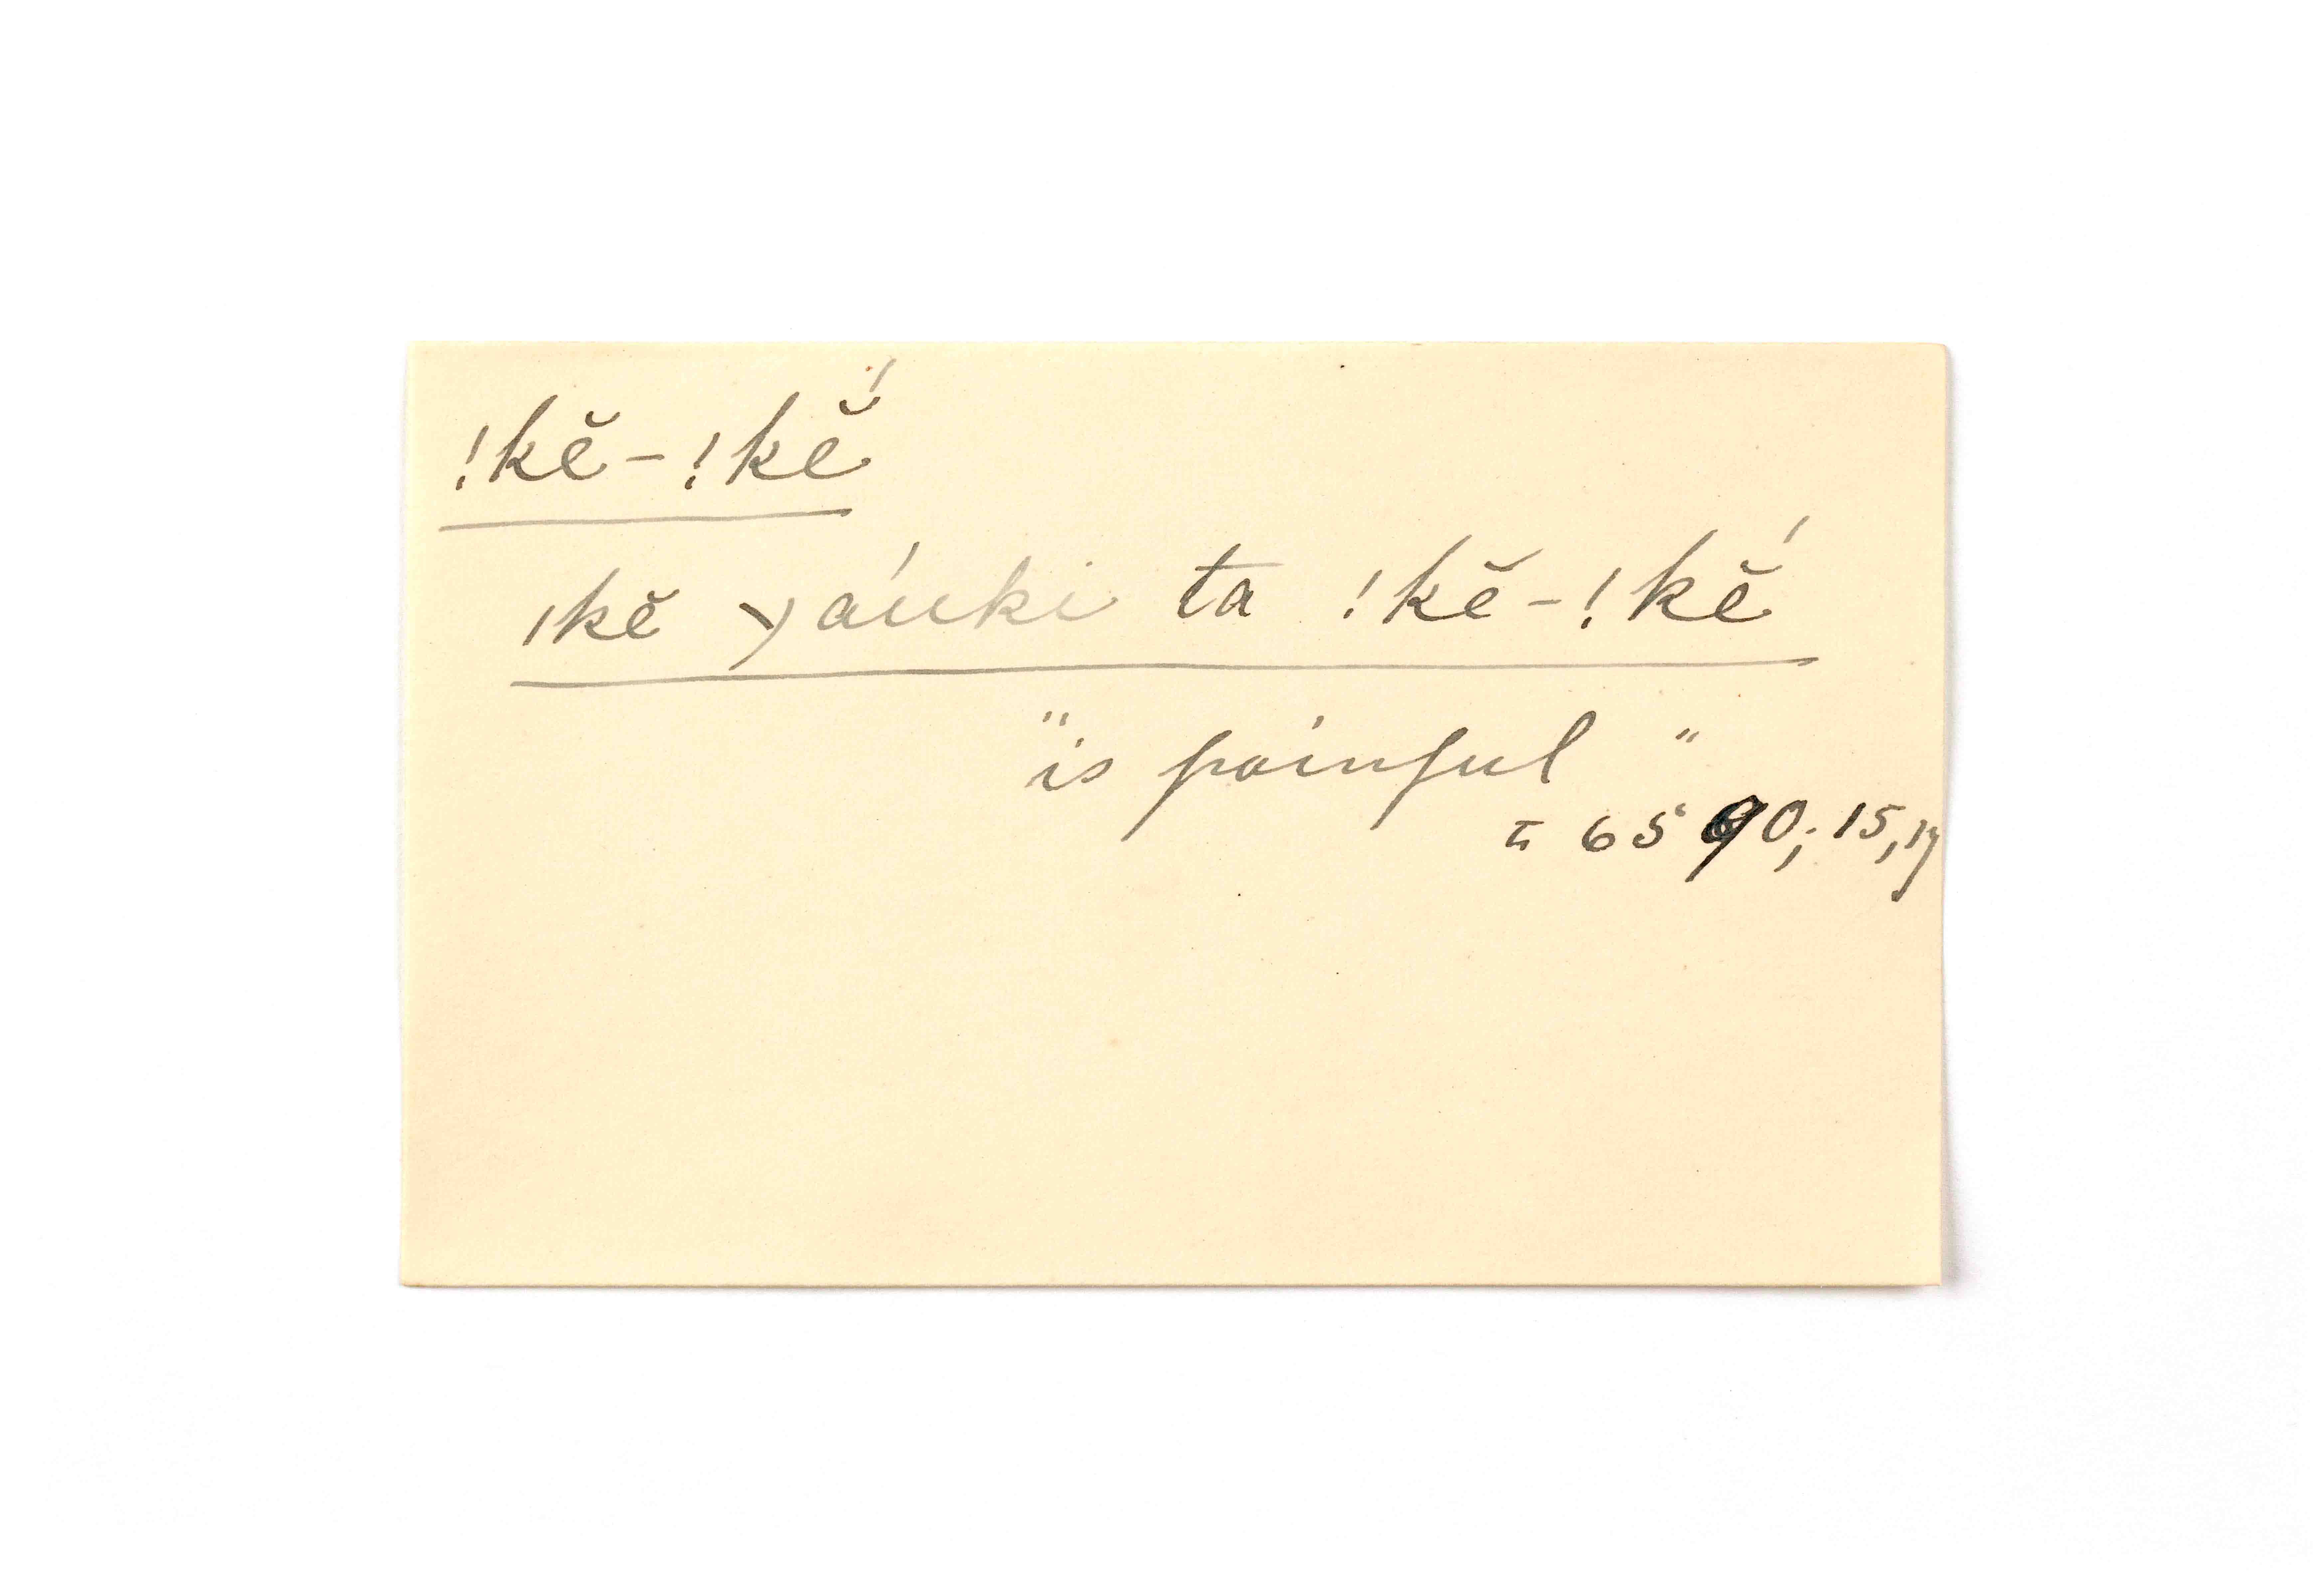 !kĕ-!kĕ́
ǀkĕ χáuki ta !kĕ-!kĕ́
"is painful"
6590; 15, 17